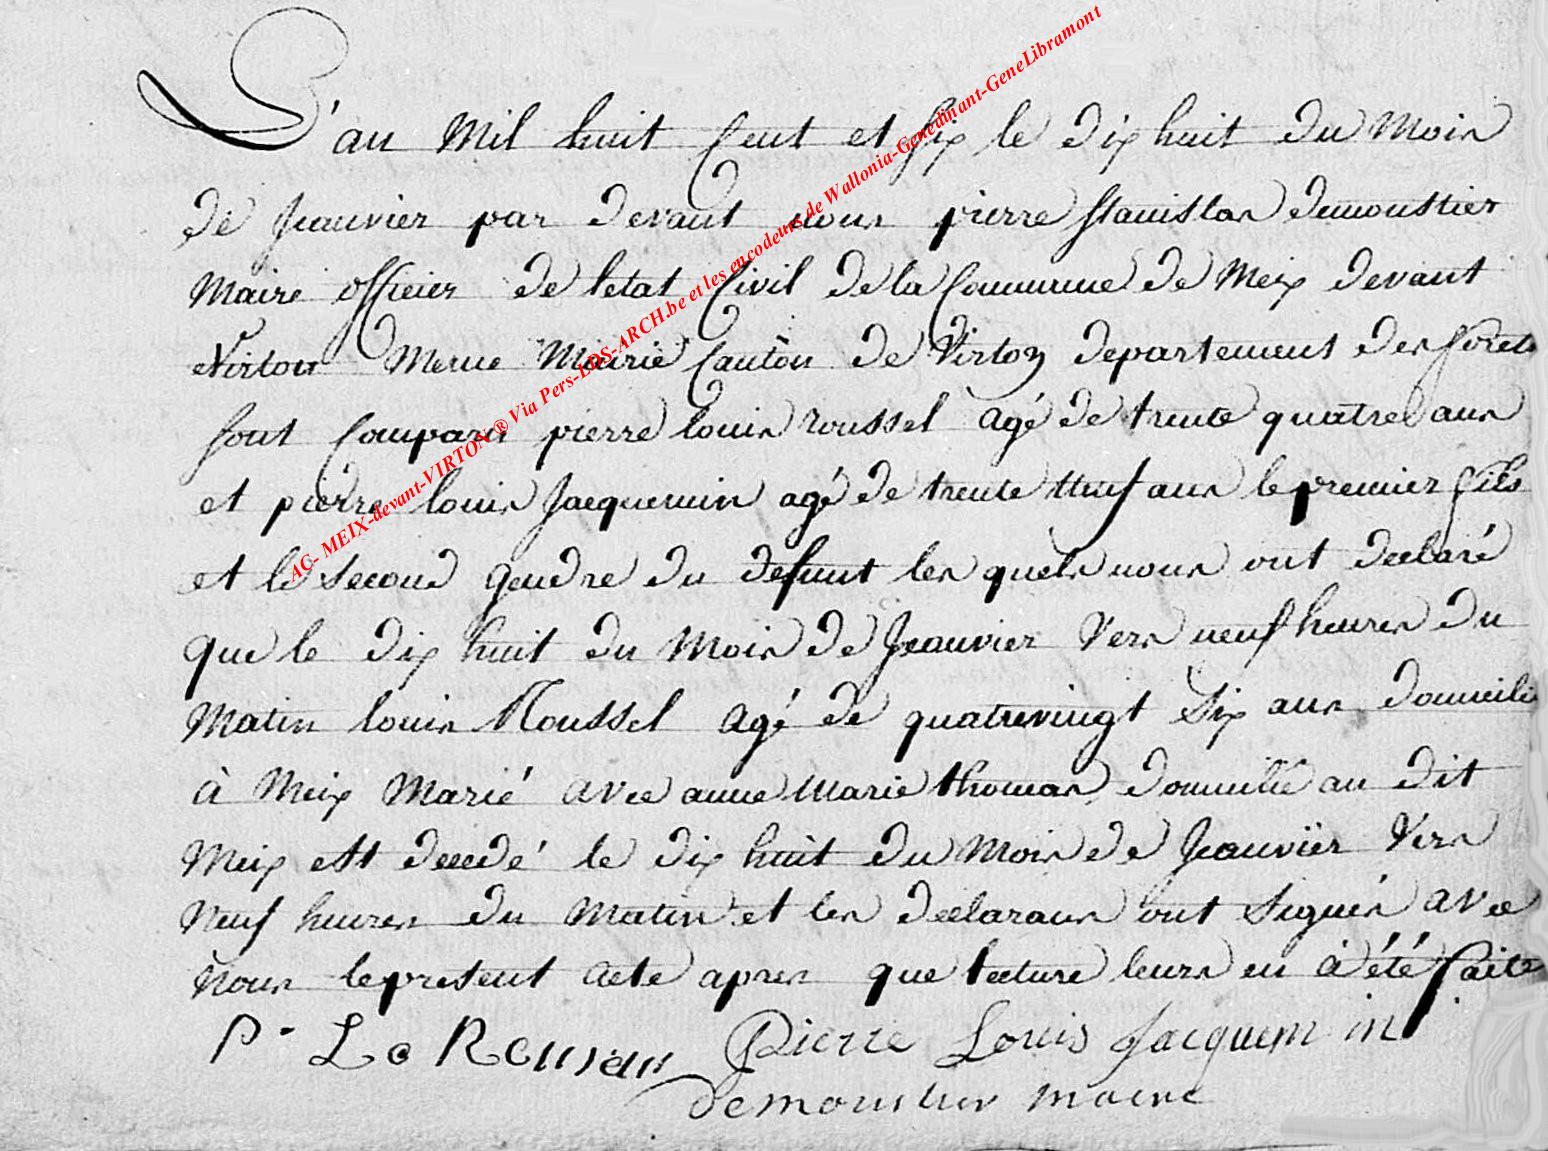 L'an Mil huit Cent et six le dix huit du Mois
de Jeauvier par devant nous pierre stanislas demoustier
Maire officier de letat Civil de la Commune de Meix devant
Virton Meme Mairie Canton de Virton departement des forets
sont Comparus pierre louis roussel agé de trente quatre ans
et pierre louis Jacquemin agé de trente neuf ans le premier fils
et le second gendre du defunt les quels nous ont declaré
que le dix huit du Mois de Jeauvier Vers neuf heures du
Matin louis Roussel agé de quatrevingt six ans domicilié
à Meix Marié avec anne Marie thomas domicilié au dit
Meix est decedé le dix huit du Mois de Jeauvier Vers
Neuf heures du Matin et les declarans ont signés avec
Nous lepresent acte apres que lecture leurs en à été faite
P. L Pierre Louis Jacquemin
demoustier maire
AC- MEIX-devant-VIRTON ® Via Pers-LDS-ARCH.be et les encodeurs de Wallonia-Genedinant-GeneLibramont